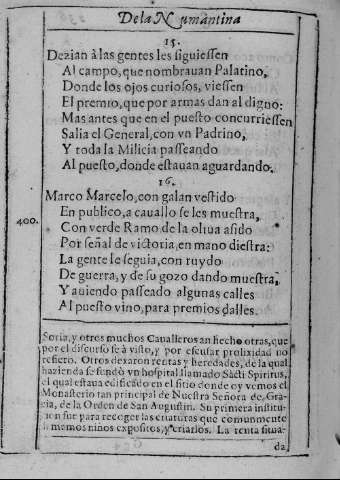 De la Numantina
15.
Dezian à las gentes les siguiessen
Al campo, que nombrauan Palatino,
Donde los ojos curiosos, viessen
El premio, que por armas dan al digno:
Mas antes que en el puesto concurriessen
Salia el General, con vn Padrino,
Y toda la Milicia passeando
Al puesto, donde estauan aguardando.
16.
Marco Marcelo, con galan vestido
En publico, a cauallo se les muestra,
400. Con verde Ramo de la oliua asido
Por señal de victoria, en mano diestra:
La gente le seguia, con ruydo
De guerra, y de su gozo dando muestra,
Y auiendo passeado algunas calles
Al puesto vino, para premios dalles.
Soria, y otros muchos Caualleros an hecho otras, que
por el discurso se à visto, y por escusar prolixidad no
refiero. Otros dexaron rentas y heredades, de la qual
hazienda se fundò vn hospital llamado Sācti Spiritus,
el qual estaua edificado en el sitio donde oy vemos el
Monasterio tan principal de Nuestra Señora de Gra-
cia, de la Orden de San Augustin. Su primera institu-
cion fue para recoger las criaturas que comunmente
llamemos niños expositos, y criarlos. La renta situa-
da